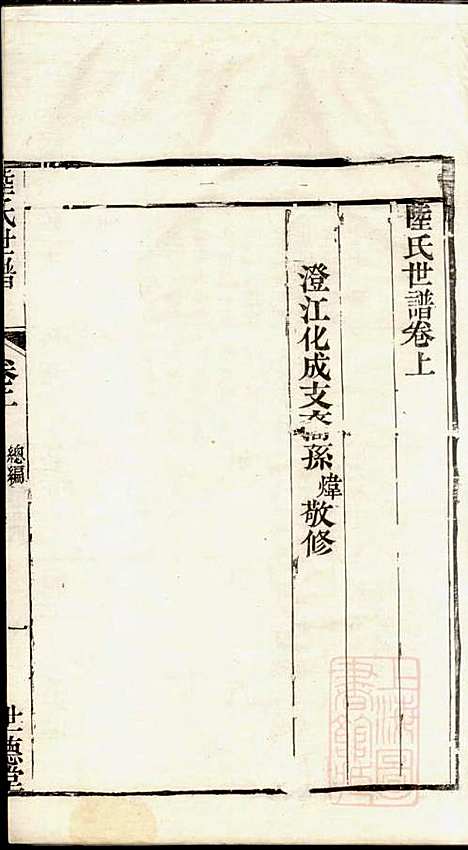 陸氏世譜卷上
澄江化成支裔孫煒敬修
陸氏世譜
卷上
總編
一
世德堂